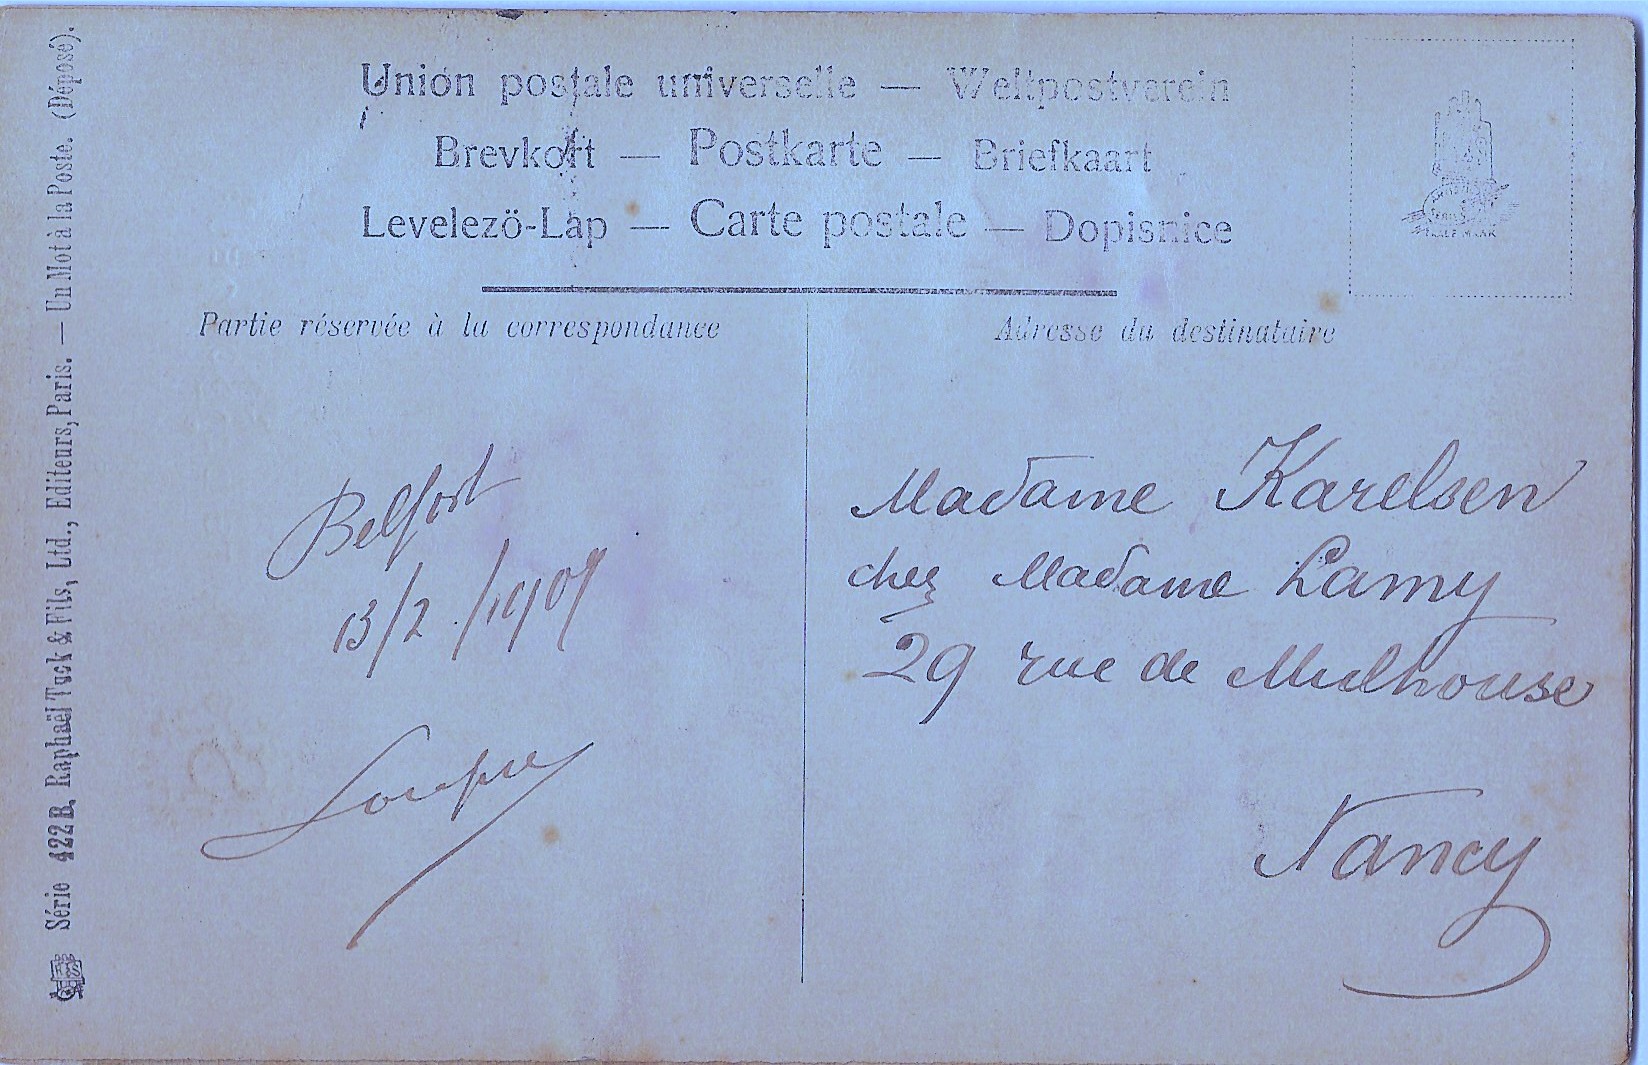 Union postale universelle — Weltpostverein
Brevkort — Postkarte — Briefkaart
Levelezö-Lap — Carte postale — Dopisnice
Partie réservée à la correspondance
Adresse du destinataire
Belfort
13/2./1907
Madame Karelsen
chez Madame Lamy
29 rue de Mulhouse
Nancy
Série 422 B. Raphaël Tuck & Fils, Ltd., Editeurs, Paris. — Un Mot à la Poste. (Déposé).